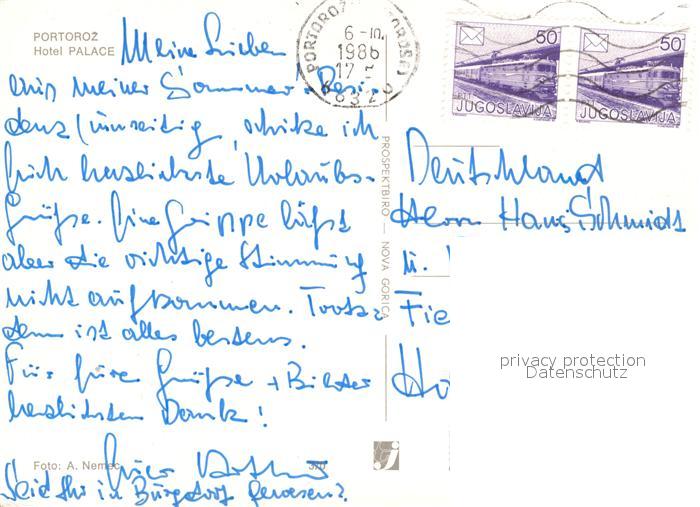 PORTOROŽ
Hotel PALACE
Meine Lieben
aus meiner Sommer-Resi-
denz (umseitig, schicke ich
Euch herzlichste Urlaubs-
Grüße. Eine Grippe läßt
aber die richtige Stimmung
nicht aufkommen. Trotz-
dem ist alles bestens.
Für Eure Grüße + Bilder
herzlichsten Dank!
Euer
Seid Ihr in Burgdorf gewesen?
Foto: A. Nemec
PROSPEKTBIRO — NOVA GORICA
PORTOROŽ
6-10.
1986
17
66320
50
JUGOSLAVIJA
50
JUGOSLAVIJA
Deutschland
Herrn Hans Schmidt
u.
Fie
Ho
privacy protection
Datenschutz